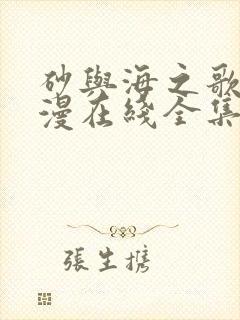 砂與海之歌
漫在綫全集
張生携